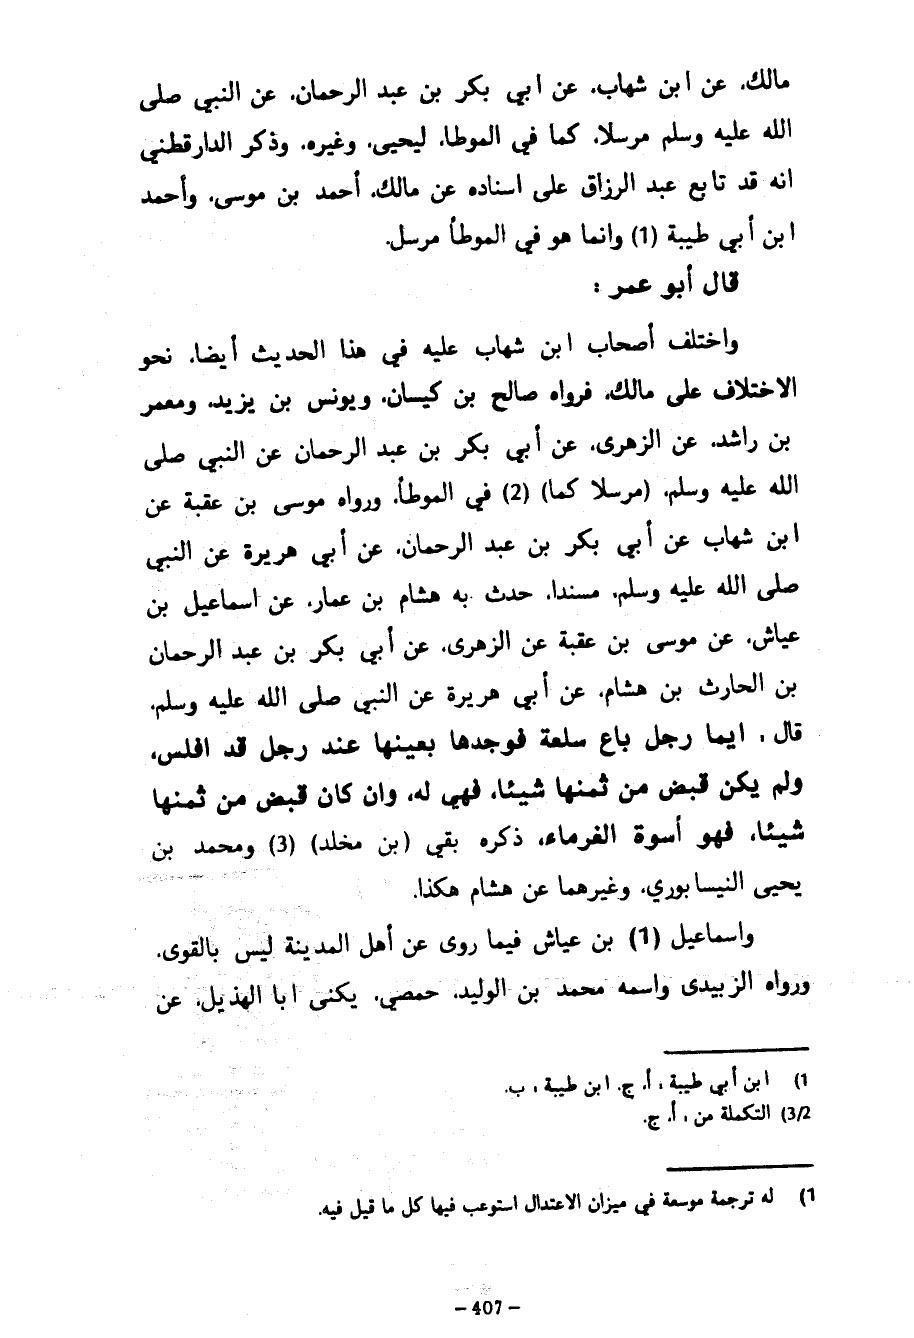 مالك، عن ابن شهاب، عن ابي بكر بن عبد الرحمان، عن النبي صلى
الله عليه وسلم مرسلا، كما في الموطا، ليحيى، وغيره، وذكر الدارقطني
انه قد تابع عبد الرزاق على اسناده عن مالك، أحمد بن موسى، وأحمد
ابن أبي طيبة (1) وانما هو في الموطأ مرسل.
قال أبو عمر :
واختلف أصحاب ابن شهاب عليه في هذا الحديث أيضا، نحو
الاختلاف على مالك، فرواه صالح بن كيسان، ويونس بن يزيد، ومعمر
بن راشد، عن الزهرى، عن أبي بكر بن عبد الرحمان عن النبي صلى
الله عليه وسلم، (مرسلا كما) (2) في الموطأ، ورواه موسى بن عقبة عن
ابن شهاب عن أبي بكر بن عبد الرحمان، عن أبي هريرة عن النبي
صلى الله عليه وسلم، مسندا، حدث به هشام بن عمار، عن اسماعيل بن
عياش، عن موسى بن عقبة عن الزهرى، عن أبي بكر بن عبد الرحمان
بن الحارث بن هشام، عن أبي هريرة عن النبي صلى الله عليه وسلم،
قال ، ايما رجل باع سلعة فوجدها بعينها عند رجل قد افلس،
ولم يكن قبض من ثمنها شيئا، فهي له، وان كان قبض من ثمنها
شيئا، فهو أسوة الغرماء، ذكره بقي (بن مخلد) (3) ومحمد بن
يحيى النيسابوري، وغيرهما عن هشام هكذا.
واسماعيل (1) بن عياش فيما روى عن أهل المدينة ليس بالقوى،
ورواه الزبيدى واسمه محمد بن الوليد، حمصي، يكنى ابا الهذيل، عن
1) ابن أبي طيبة ، أ، ج. ابن طيبة ، ب.
3/2) التكملة من ، أ، ج.
1) له ترجمة موسعة في ميزان الاعتدال استوعب فيها كل ما قيل فيه.
– 407 –